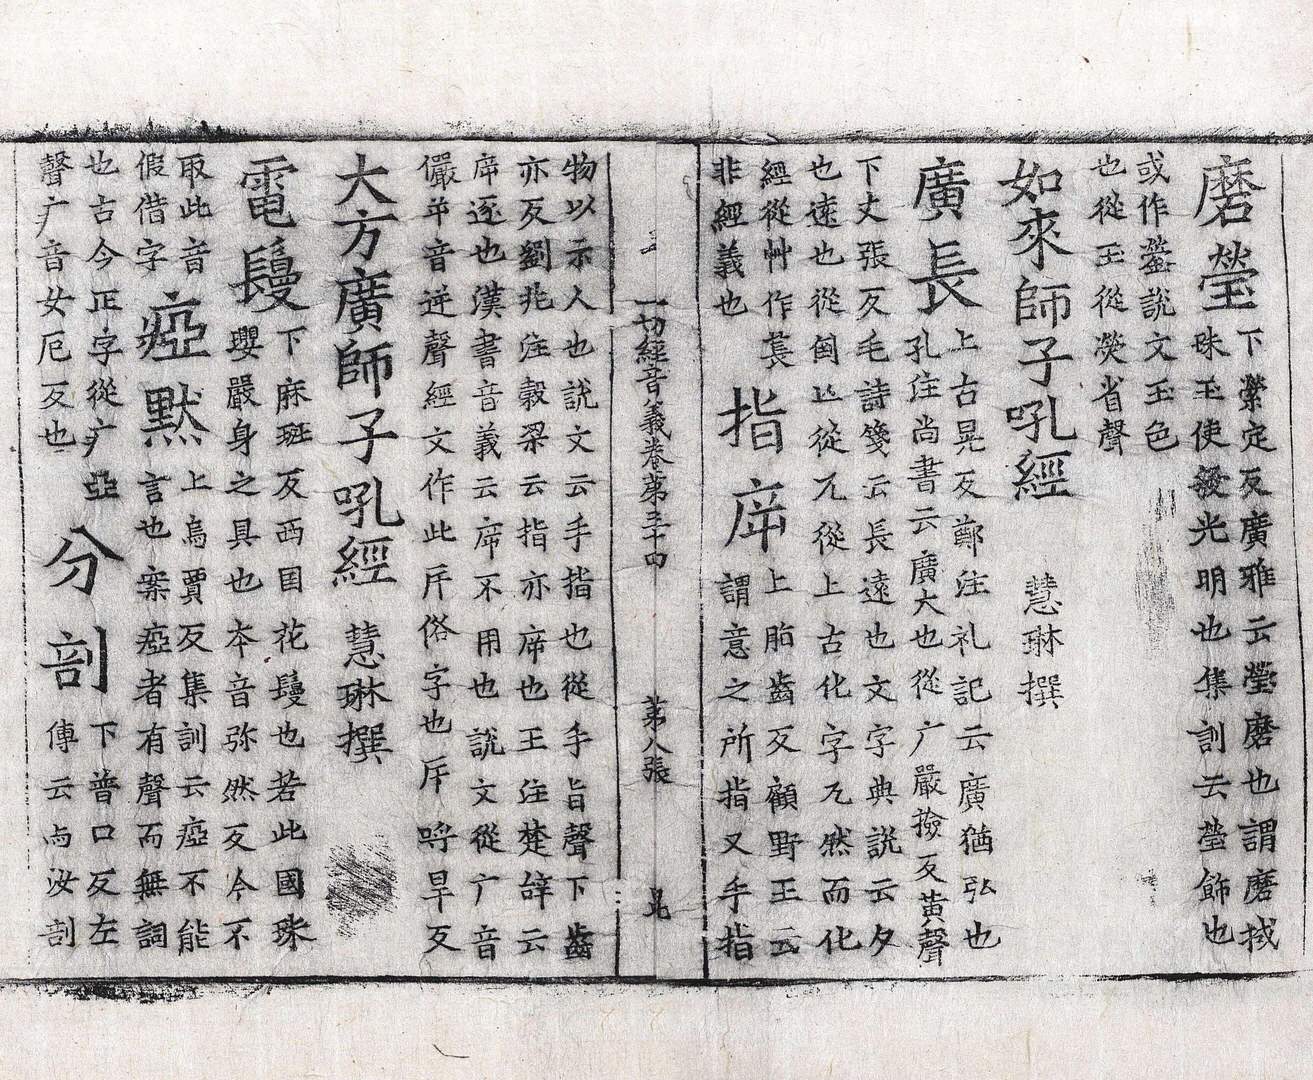 磨瑩 下縈定反廣雅云瑩磨也謂磨拭
珠玉使發光明也集訓云瑩飾也
或作鎣說文玉色
也從玉從熒省聲
如來師子吼經 慧琳撰
廣長 上古晃反鄭注礼記云廣猶弘也
孔注尚書云廣大也從广嚴撿反黃聲
下丈張反毛詩箋云長遠也文字典說云夕
也遠也從倒亾從兀從上古化字兀然而化
經從艸作萇
非經義也
指㡿 上脂齒反顧野王云
謂意之所指又手指
一切經音義卷第三十四 第八張
物以示人也說文云手指也從手旨聲下齒
亦反劉兆注穀梁云指亦㡿也王注楚辞云
㡿逐也漢書音義云㡿不用也說文從广音
儼幷音逆聲經文作此斥俗字也斥呼旱反
大方廣師子吼經 慧琳撰
電鬘 下麻班反西国花鬘也若此國珠
瓔嚴身之具也本音弥然反今不
取此音
假借字
瘂默 上烏賈反集訓云瘂不能
言也案瘂者有聲而無詞
也古今正字從疒亞
聲疒音女厄反也
分剖 下普口反左
傳云与汝剖